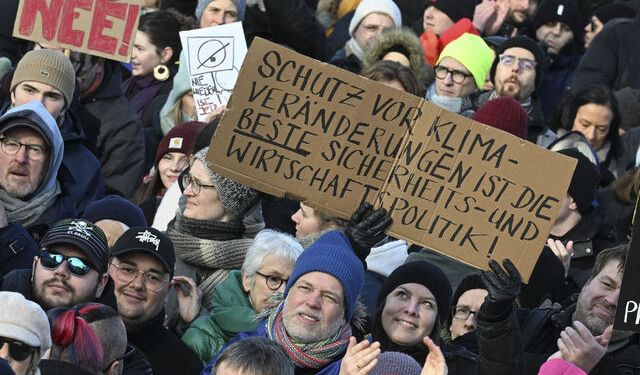 NEE!
NIE
WIEDER
IST
SCHUTZ VOR KLIMA-
VERÄNDERUNGEN IST DIE
BESTE SICHERHEITS- UND
WIRTSCHAFTSPOLITIK!
ST. PAULI